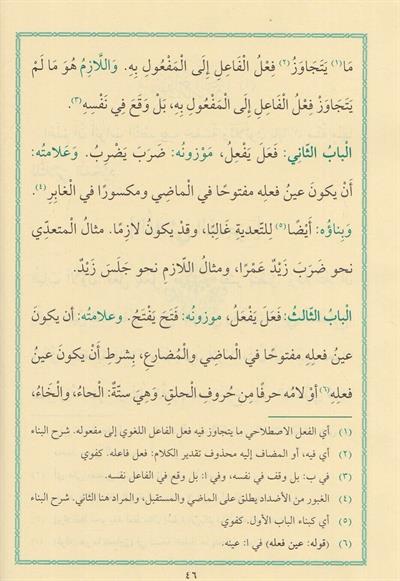 مَا(١) يَتَجَاوَزُ(٢) فِعْلُ الْفَاعِلِ إِلَى الْمَفْعُولِ بِهِ. وَاللَّازِمُ هُوَ مَا لَمْ
يَتَجَاوَزْ فِعْلُ الْفَاعِلِ إِلَى الْمَفْعُولِ بِهِ، بَلْ وَقَعَ فِي نَفْسِهِ(٣).
الْبابُ الثّانِي: فَعَلَ يَفْعِلُ، مَوْزونُه: ضَرَبَ يَضْرِبُ. وَعَلامتُه:
أَنْ يكونَ عينُ فعلِه مفتوحًا في الْماضِي ومكسورًا في الْغابِرِ(٤).
وَبِناؤُه: أَيْضًا(٥) لِلتّعديةِ غَالِبًا، وقدْ يكونُ لازِمًا. مثالُ المتعدِّي
نحو ضَرَبَ زَيْدٌ عَمْرًا، ومثالُ اللّازمِ نحو جَلَسَ زَيْدٌ.
الْبابُ الثّالثُ: فَعَلَ يَفْعَلُ، موزونُه: فَتَحَ يَفْتَحُ. وعلامتُه: أن يكونَ
عينُ فعلِهِ مفتوحًا في الْماضِي والْمُضارعِ، بِشرطِ أَنْ يكونَ عينُ
فعلِهِ(٦) أوْ لامُه حرفًا مِن حُروفِ الْحلقِ. وَهِيَ ستّةٌ: الْحاءُ، والْخَاءُ،
(١) أي الفعل الاصطلاحي ما يتجاوز فيه فعل الفاعل اللغوي إلى مفعوله. شرح البناء
(٢) أي فيه، أو المضاف إليه محذوف تقدير الكلام: فعل فاعله. كفوي
(٣) في ب: بل وقف في نفسه، وفي ا: بل وقع في الفاعل نفسه.
(٤) الغبور من الأضداد يطلق على الماضي والمستقبل، والمراد هنا الثاني. شرح البناء
(٥) أي كبناء الباب الأول. كفوي
(٦) (قوله: عين فعله) في ا: عينه.
٤٦